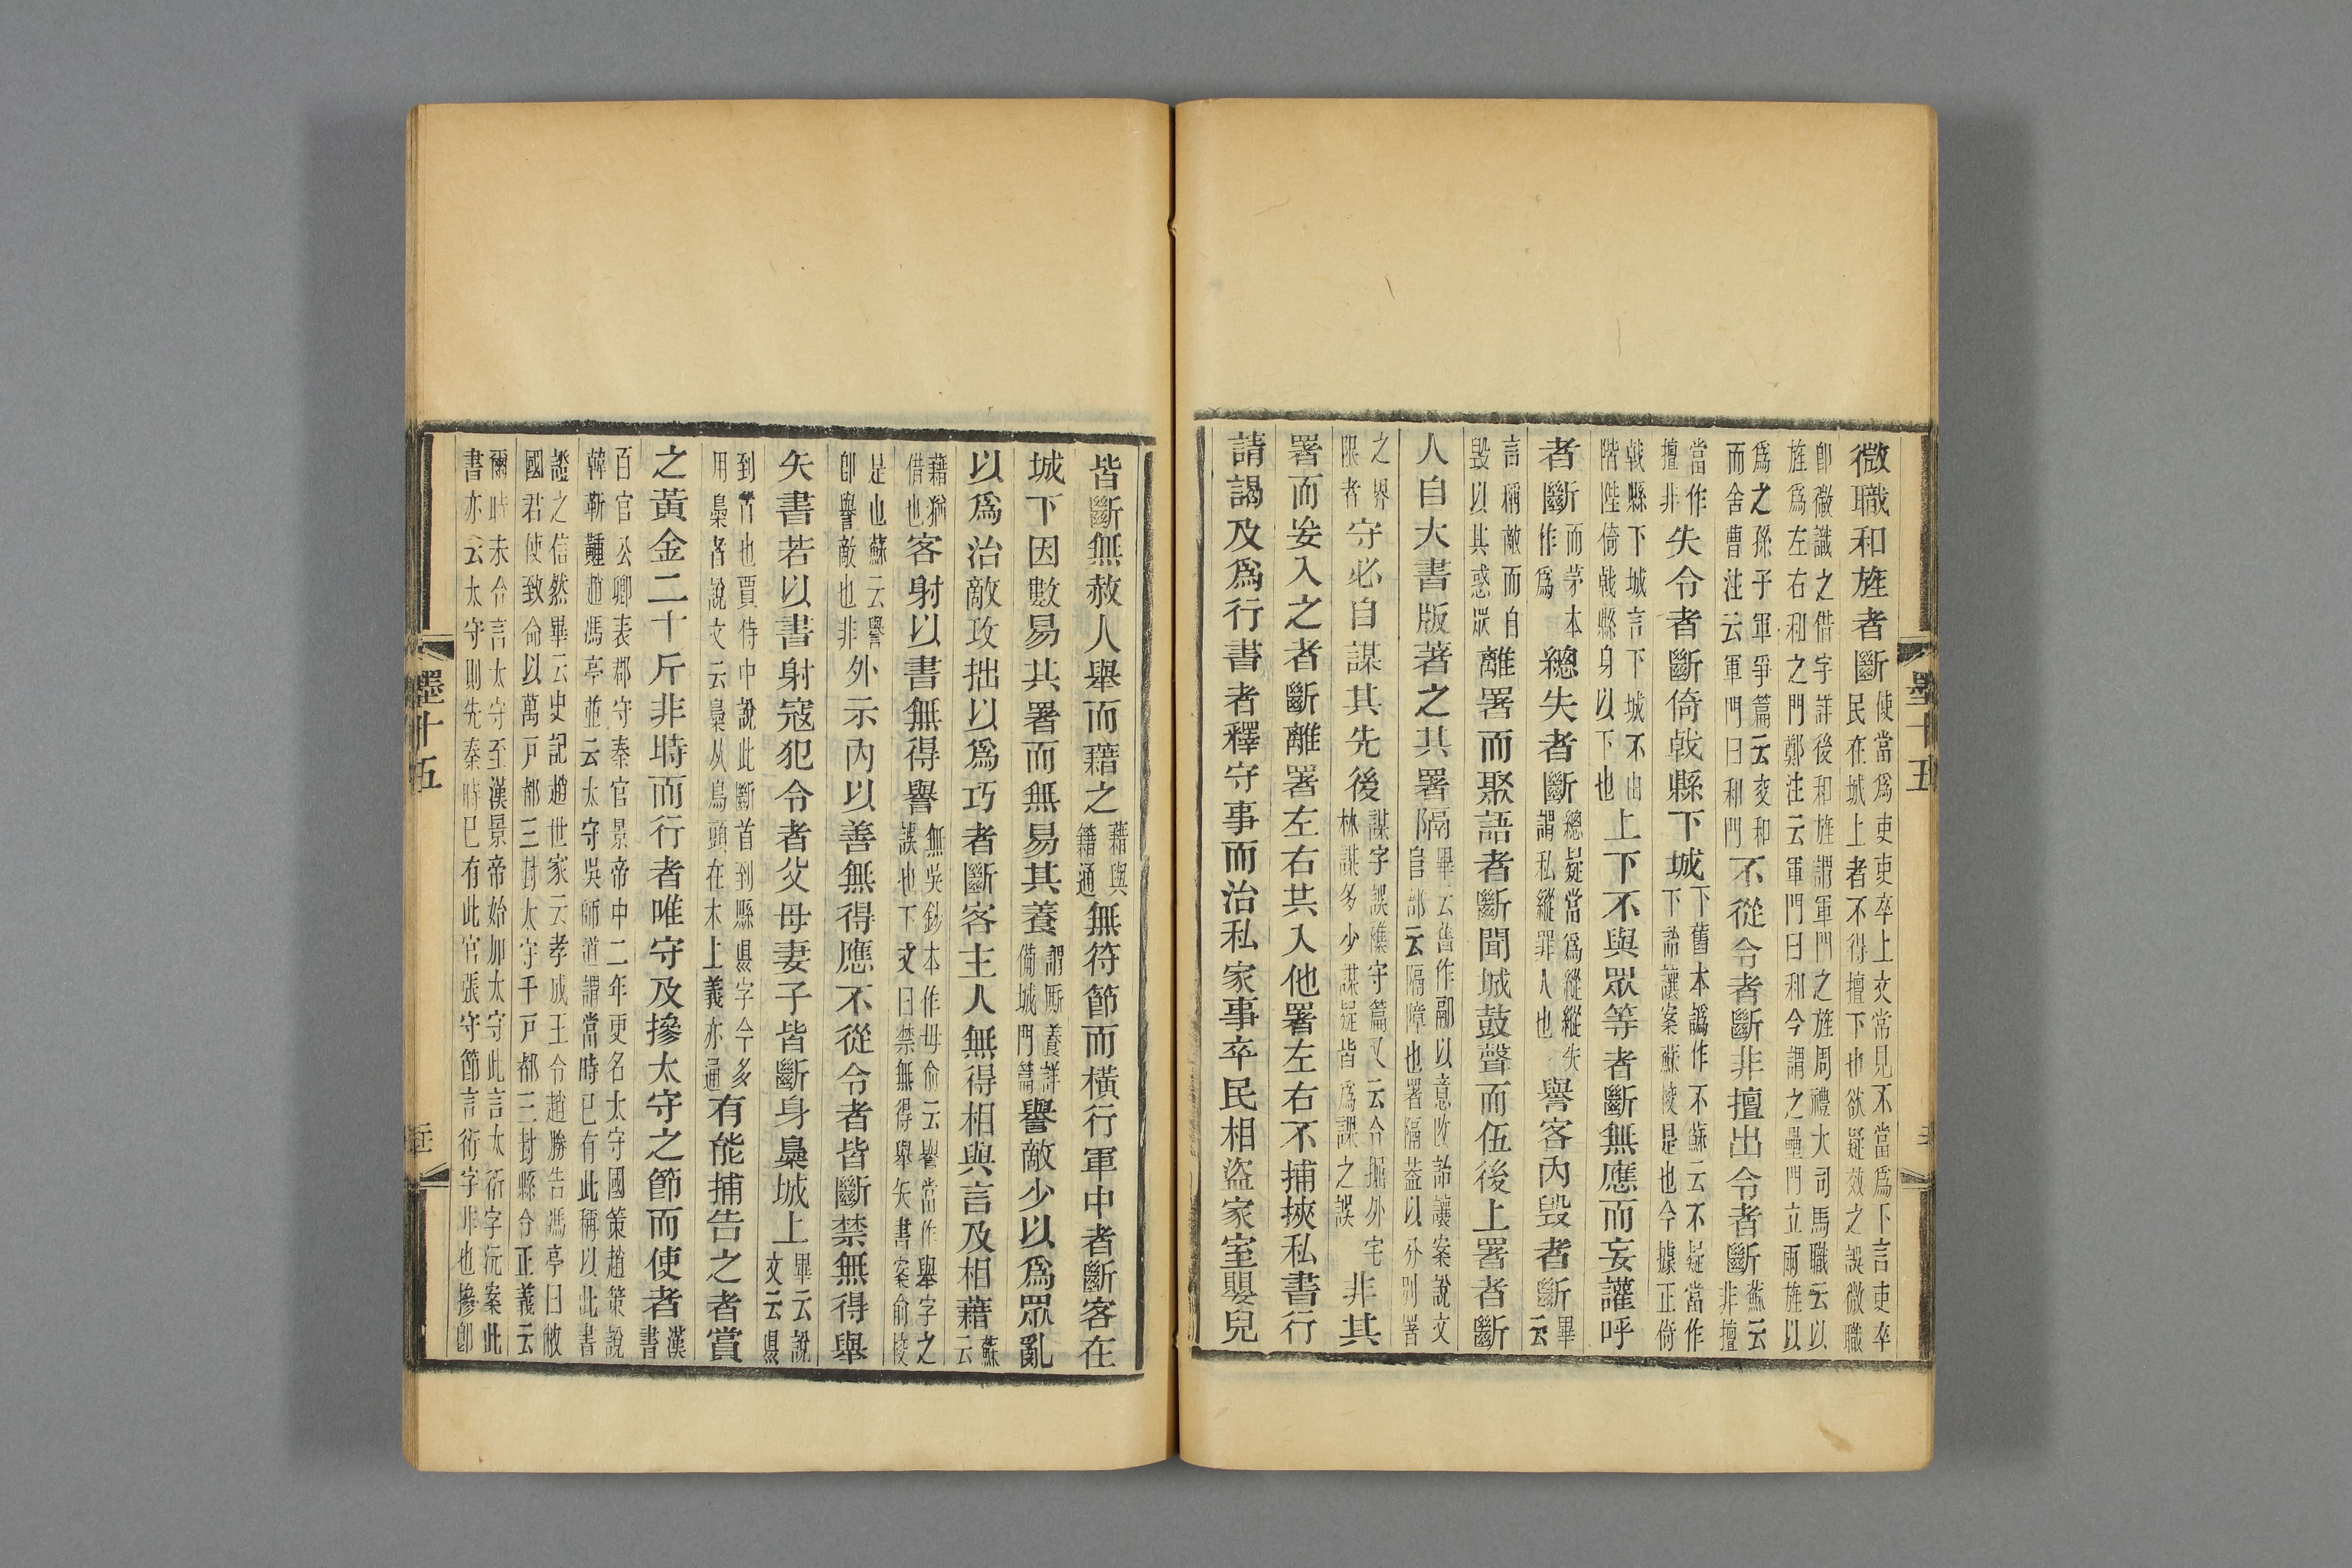 微職和旌者斷使當爲吏吏卒上文常見不當爲下言吏卒民在城上者不得擅下也欲疑效之誤微職
卽徽識之借字詳後和旌謂軍門之旌周禮大司馬職云以旌爲左右和之門鄭注云軍門曰和今謂之壘門立兩旌以
爲之孫子軍爭篇云交和而舍曹注云軍門曰和門不從令者斷非擅出令者斷蘇云非擅
當作擅非失令者斷倚戟縣下城下舊本譌作不蘇云不疑當作下詒讓案蘇校是也今據正倚
戟縣下城言下城不由階陛倚戟縣身以下也上下不與眾等者斷無應而妄讙呼
者斷而茅本作爲總失者斷總疑當爲縱縱失謂私縱罪人也譽客內毀者斷畢云
言稱敵而自毀以其惑眾離署而聚語者斷聞城鼓聲而伍後上署者斷
人自大書版著之其署隔畢云舊作鬴以意改詒讓案說文𨸏部云隔障也署隔蓋以分別署
之界限者守必自謀其先後謀字誤襍守篇又云令掘外宅林謀多少謀疑皆爲課之誤非其
署而妄入之者斷離署左右共入他署左右不捕挾私書行
請謁及爲行書者釋守事而治私家事卒民相盜家室嬰兒
墨十五
皆斷無赦人舉而藉之藉與籍通無符節而橫行軍中者斷客在
城下因數易其署而無易其養謂廝養詳備城門篇譽敵少以爲眾亂
以爲治敵攻拙以爲巧者斷客主人無得相與言及相藉蘇云
藉猶借也客射以書無得譽無吳鈔本作毋俞云譽當作舉字之誤也下文曰禁無得舉矢書案俞校
是也蘇云譽卽譽敵也非外示內以善無得應不從令者皆斷禁無得舉
矢書若以書射寇犯令者父母妻子皆斷身梟城上畢云說文云㬎
到𥄉也賈侍中說此斷首到縣㬎字今多用梟者說文云梟从鳥頭在木上義亦通有能捕告之者賞
之黃金二十斤非時而行者唯守及摻太守之節而使者漢書
百官公卿表郡守秦官景帝中二年更名太守國策趙策說韓靳䵻趙馮亭並云太守吳師道謂當時已有此稱以此書
證之信然畢云史記趙世家云孝成王令趙勝告馮亭曰敝國君使致命以萬戶都三封太守千戶都三封縣令正義云
爾時未合言太守至漢景帝始加太守此言太衍字沅案此書亦云太守則先秦時已有此官張守節言衍字非也摻卽
墨十五